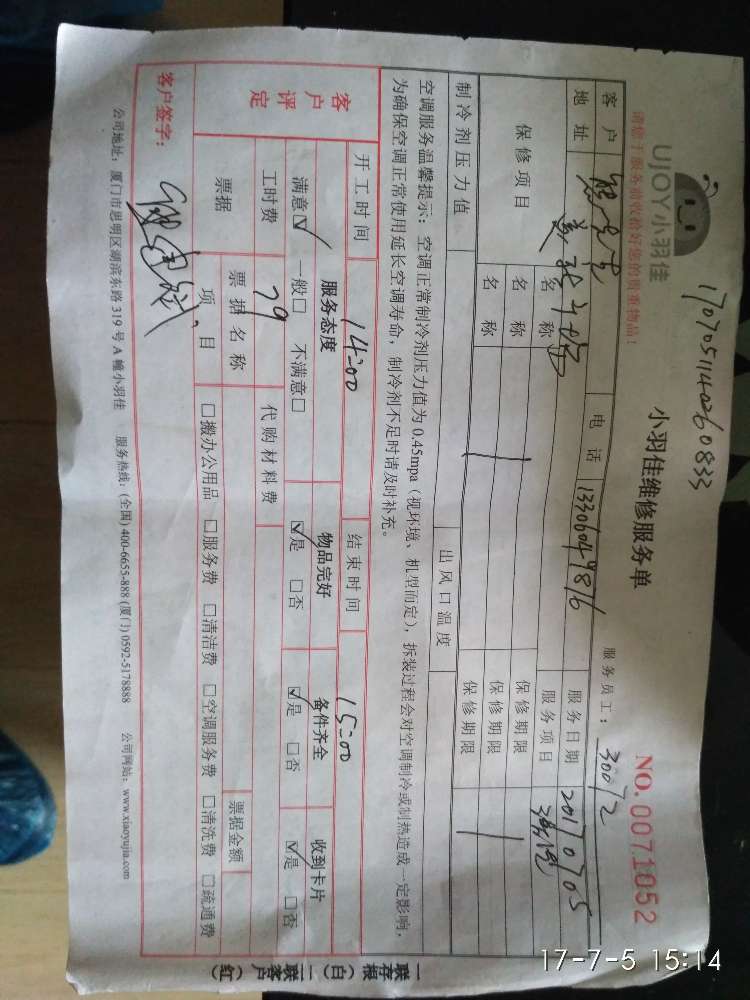 1707051140260833
UJOY小羽佳
小羽佳维修服务单
NO.0071052
请您于服务前收拾好您的贵重物品!
服务员工: 30072
客户 电话 13306049816 服务日期 20170705
地址 服务项目
保修项目 名称 保修期限
名称 保修期限
名称 保修期限
制冷剂压力值 出风口温度
空调服务温馨提示:空调正常制冷剂压力值为0.45mpa(视环境、机型而定),拆装过程会对空调制冷或制热造成一定影响,
为确保空调正常使用延长空调寿命,制冷剂不足时请及时补充。
开工时间 14:00 结束时间 15:00
客户评定 服务态度 物品完好 备件齐全 收到卡片
满意☑ 一般□ 不满意□ ☑是 □否 ☑是 □否 ☑是 □否
工时费 79 代购材料费
票据 票据名称 票据金额
项目 □搬办公用品 □服务费 □清洁费 □空调服务费 □清洗费 □疏通费
客户签字:
公司地址:厦门市思明区湖滨东路319号A幢小羽佳 服务热线:(全国)400-6655-888 (厦门)0592-5178888 公司网站:www.xiaoyujia.com
一联存根(白)二联客户(红)
17-7-5 15:14